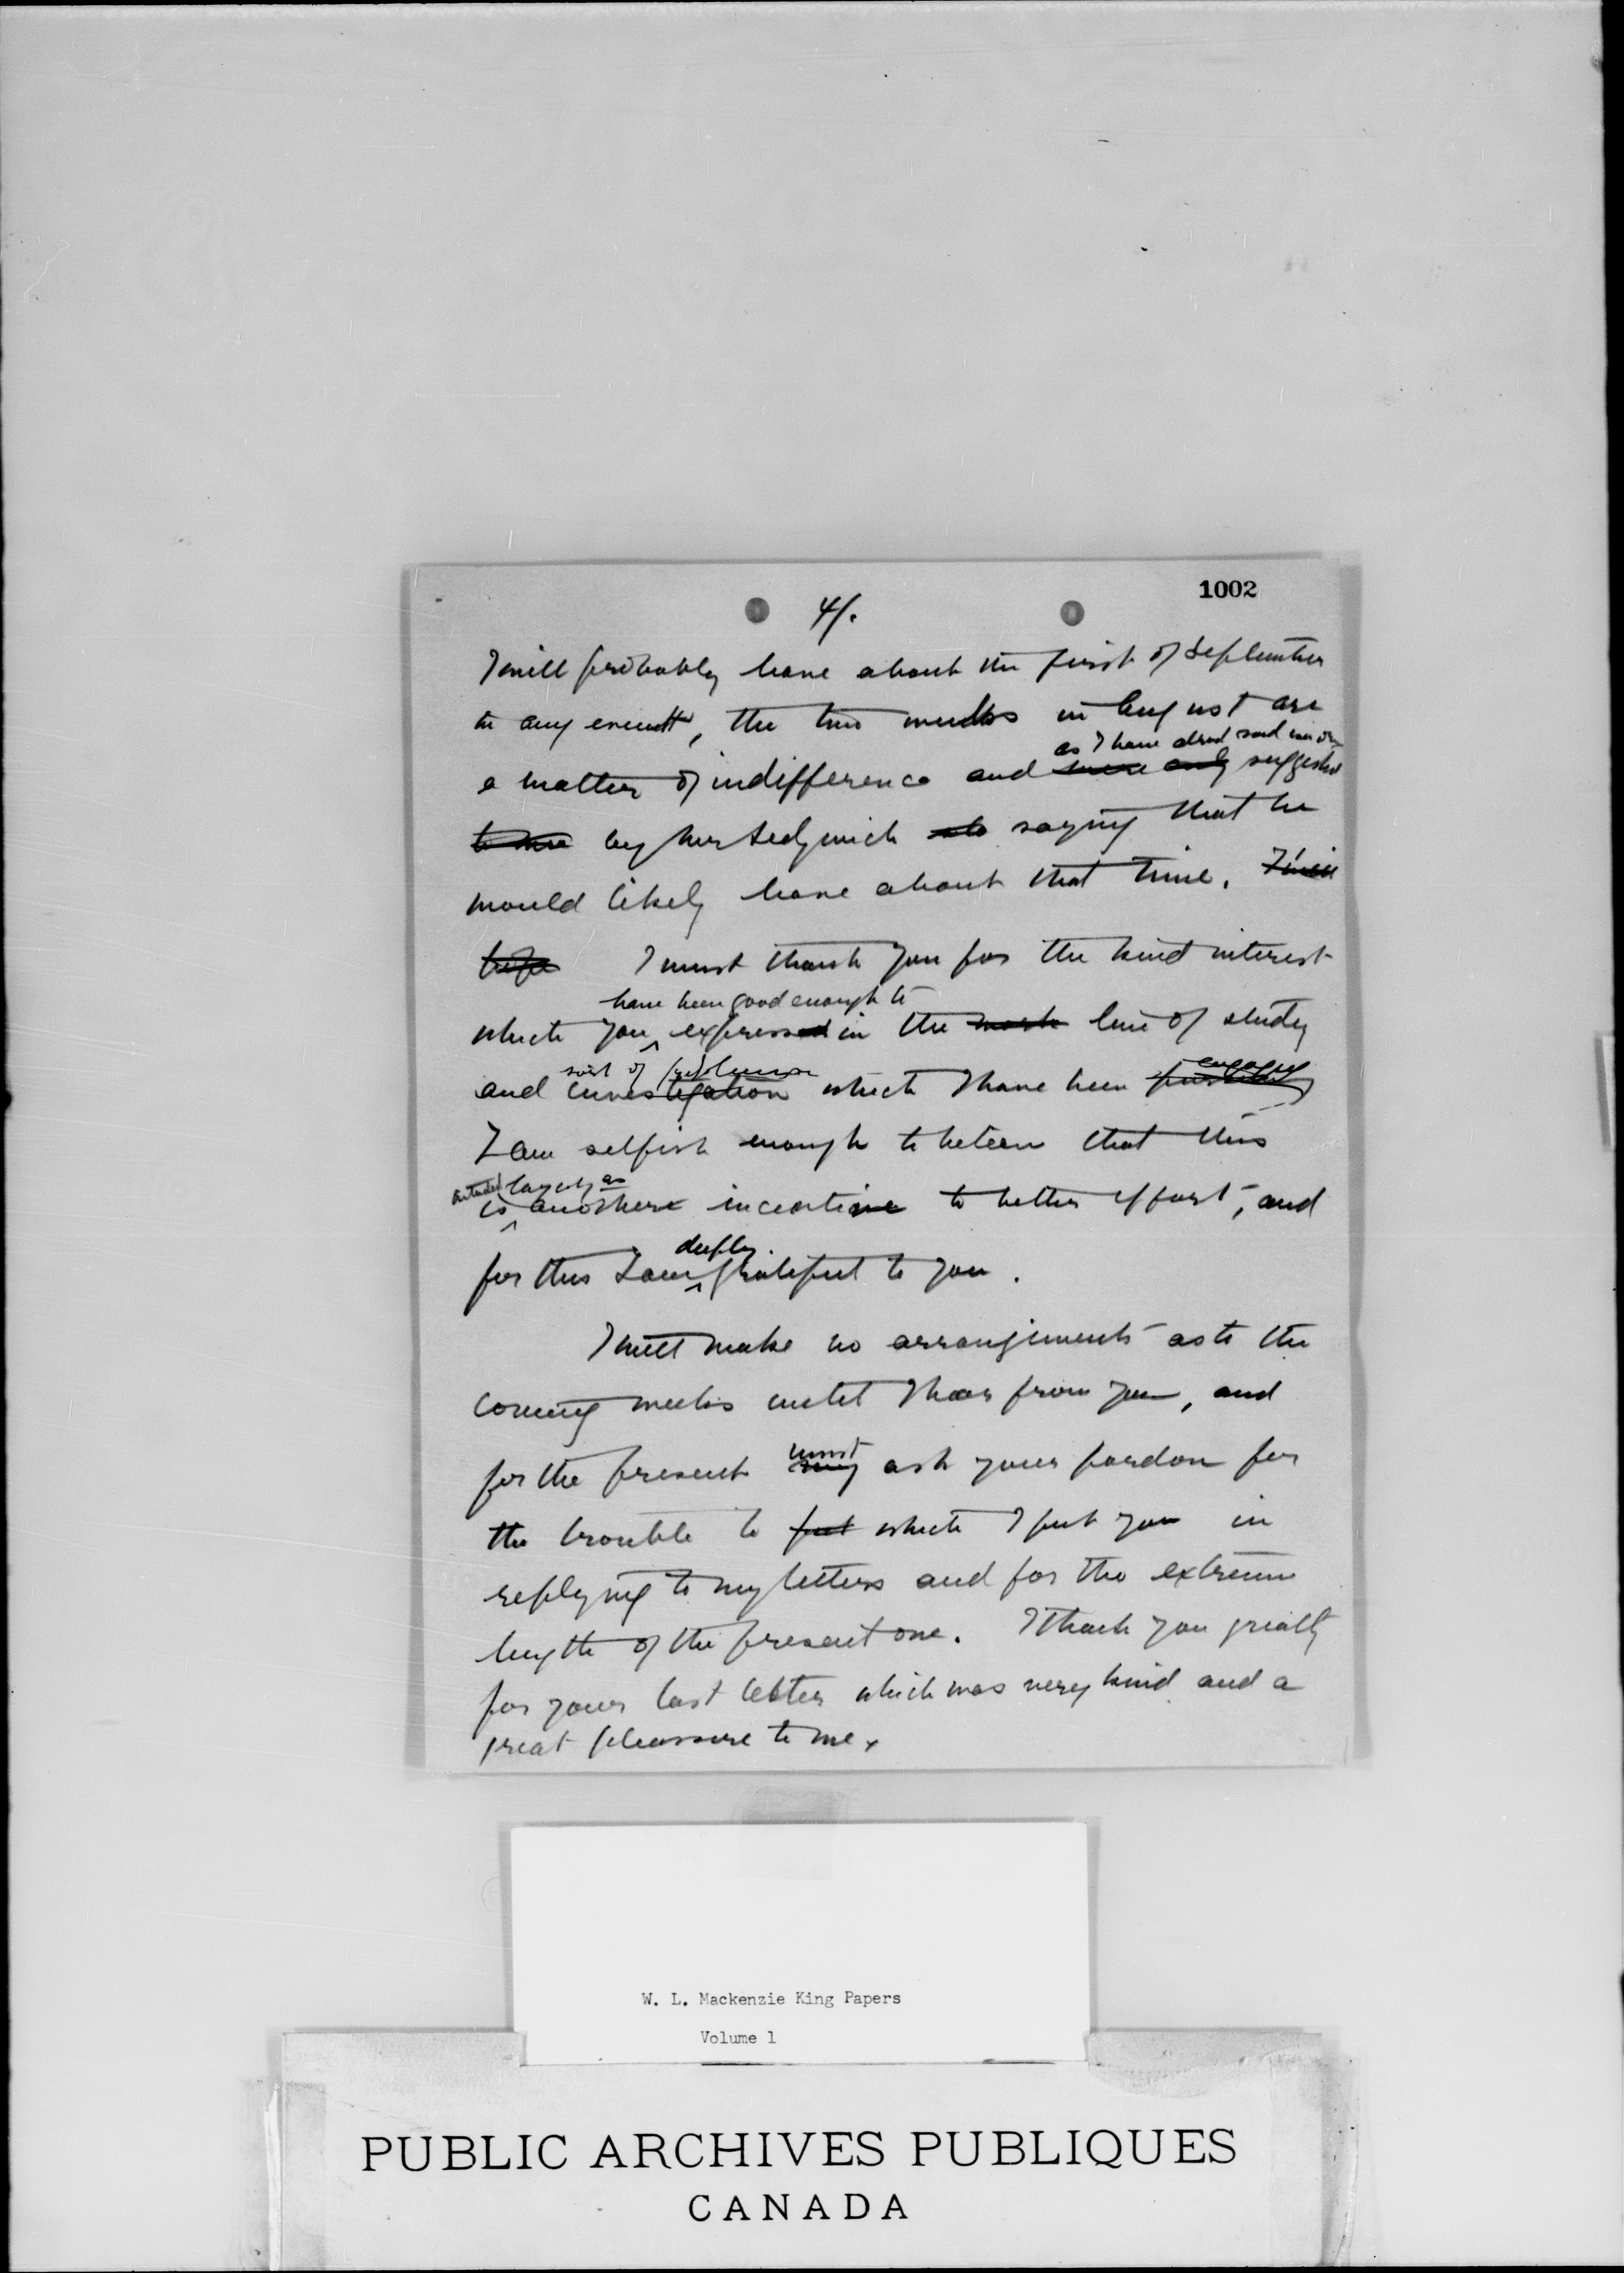 1002
4/.
I will probably leave about the first of September
in any event, the two weeks in August are
as I have said
a matter of indifference and were only suggested
to me by Mr Sedgwick saying that he
would likely leave about that time. I will
I must thank you for the kind interest
have been good enough to
which you expressed in the work line of study
sort of
and investigation which I have been
I am selfish enough to believe that this
largely as
is another incentive to better effort, and
deeply
for this I am grateful to you.
I will make no arrangements as to the
coming weeks until I hear from you, and
must
for the present may ask your pardon for
the trouble to put which I put you in
replying to my letters and for the extreme
length of the present one. I thank you greatly
for your last letter which was very kind and a
great pleasure to me.
W. L. Mackenzie King Papers
Volume 1
PUBLIC ARCHIVES PUBLIQUES
CANADA